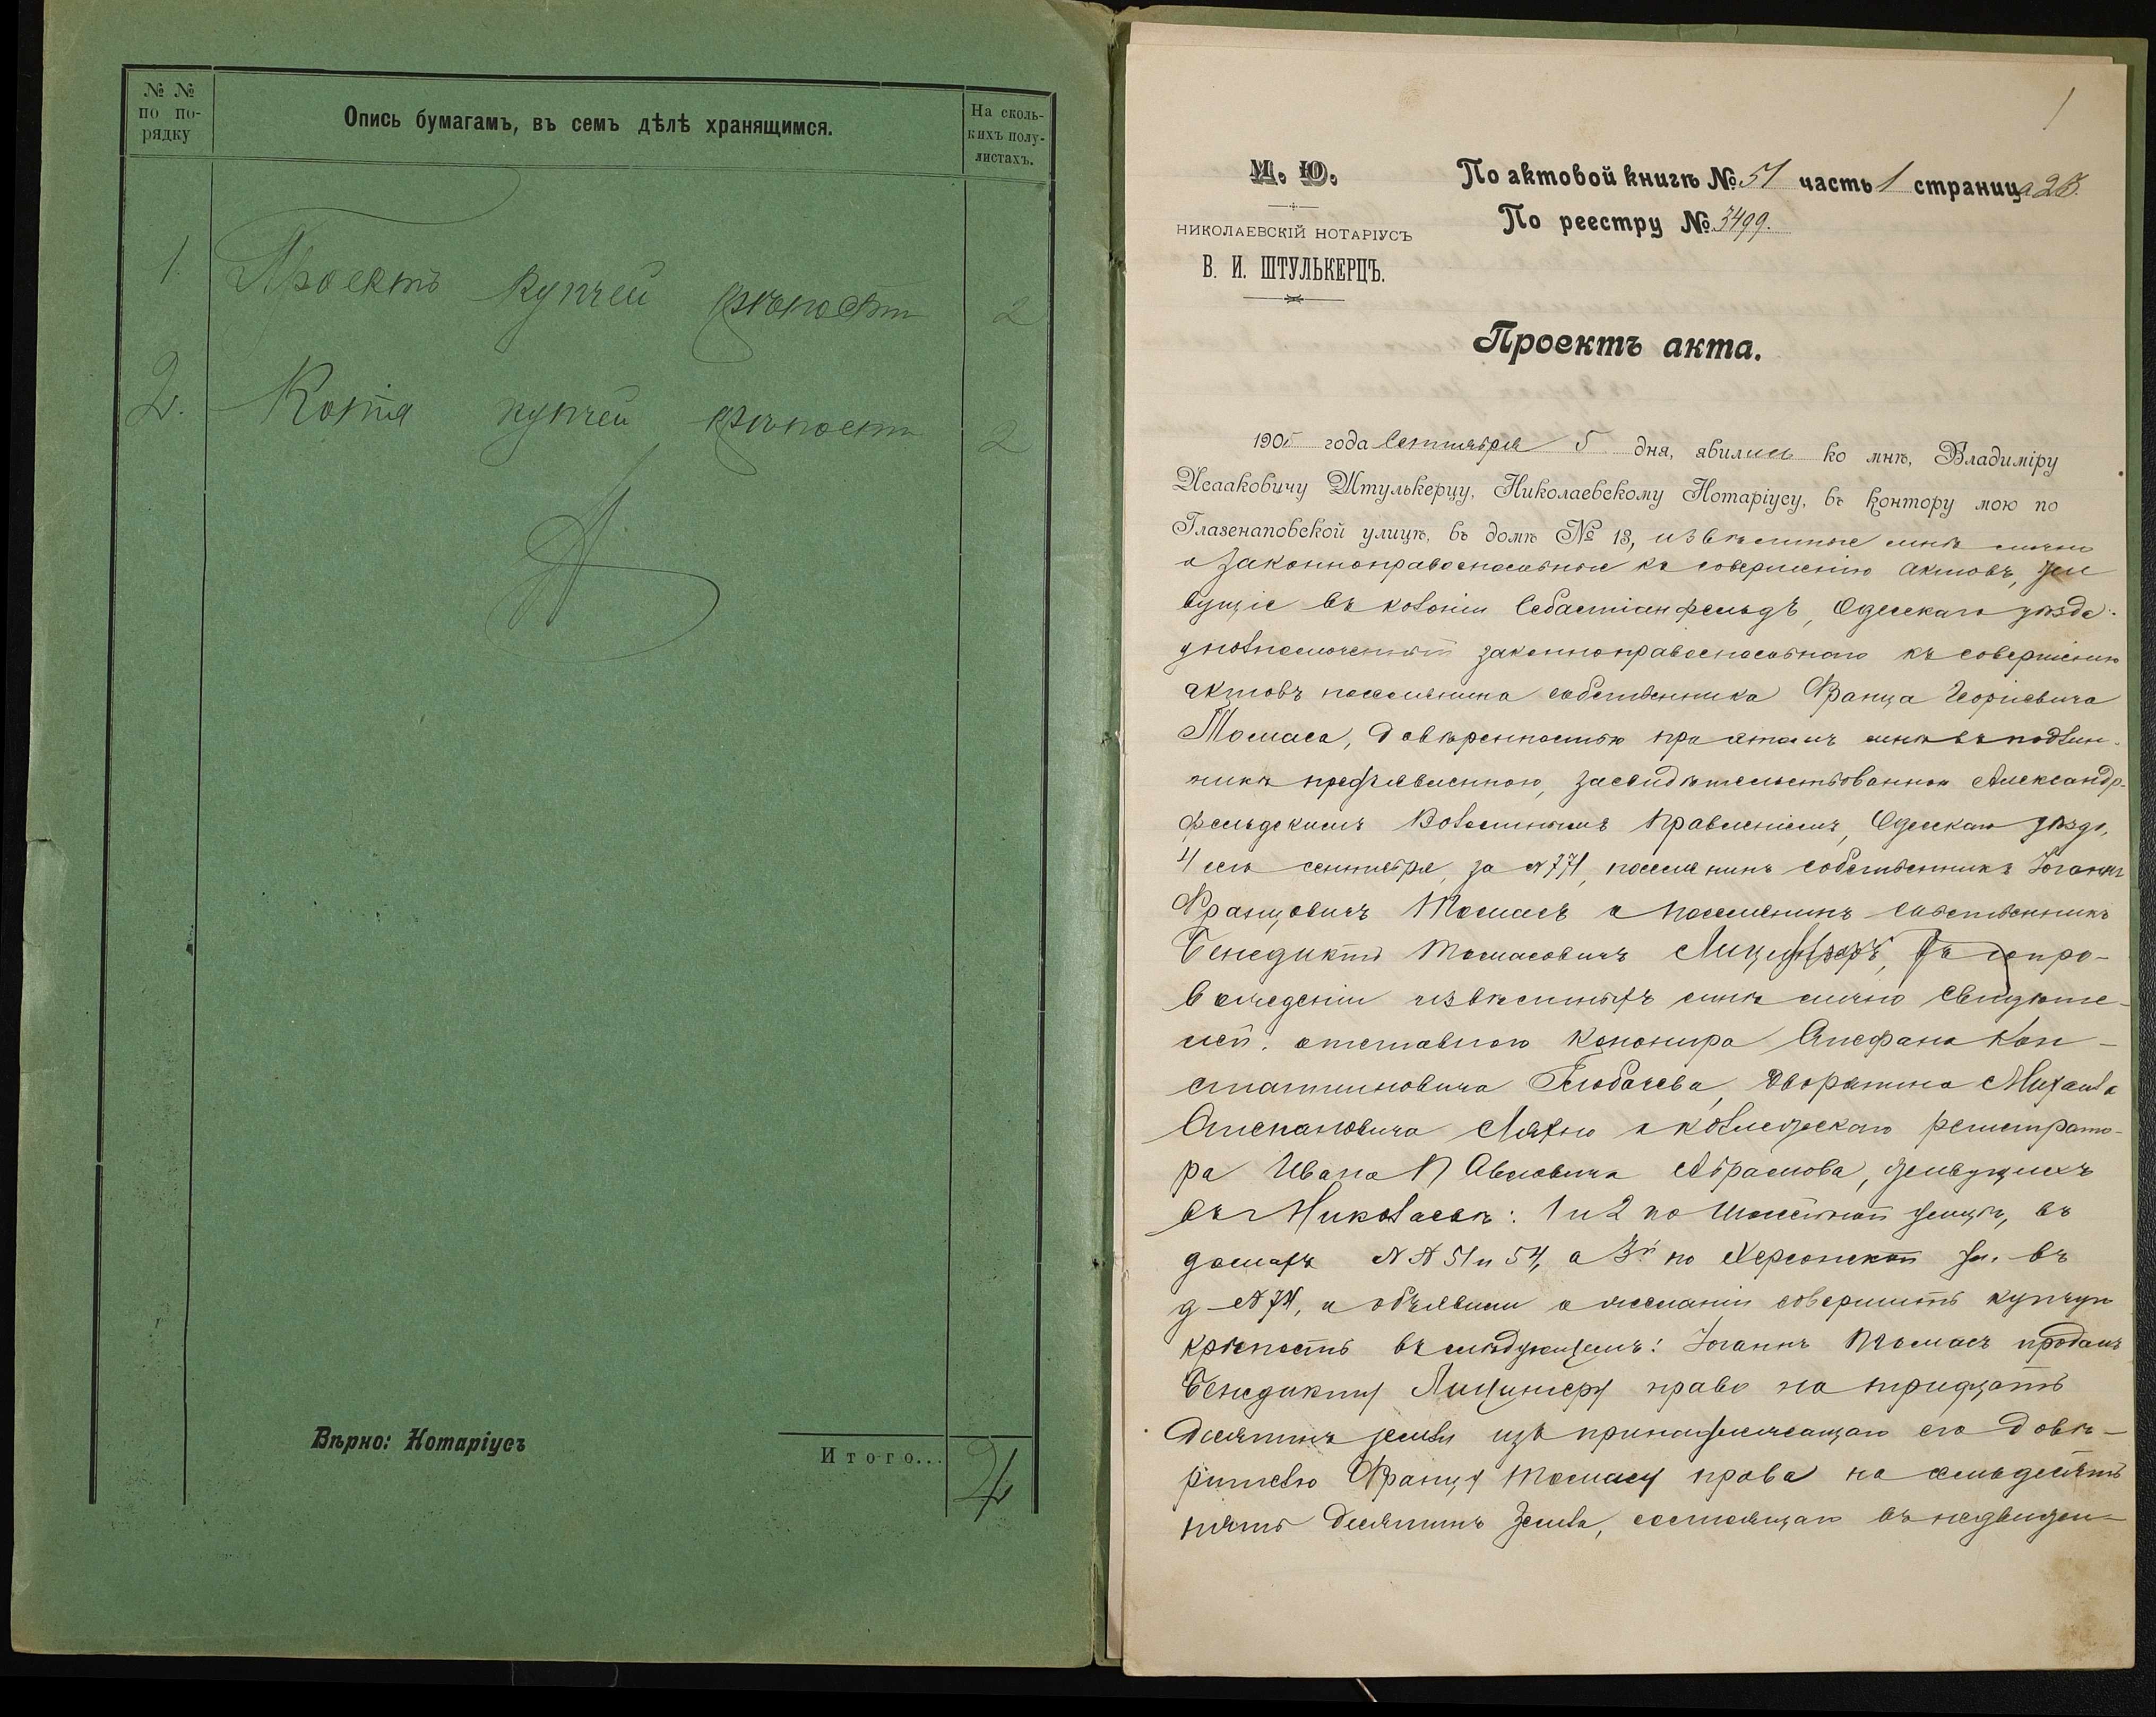 № №
по по-
рядку
Опись бумагамъ, въ семъ дѣлѣ хранящимся.
На сколь-
кихъ полу-
листахъ.
1. Проектъ купчей крѣпости 2
2. Копія купчей крѣпости 2
Вѣрно: Нотаріусъ
Итого... 4
1
М. Ю.
НИКОЛАЕВСКІЙ НОТАРІУСЪ
В. И. ШТУЛЬКЕРЦЪ.
По актовой книгѣ № 51 часть 1 страница 28.
По реестру № 3499.
Проектъ акта.
1905 года Сентября 5 дня, явились ко мнѣ, Владиміру
Исааковичу Штулькерцу, Николаевскому Нотаріусу, въ контору мою по
Глазенаповской улицѣ, въ домѣ № 13, извѣстные мнѣ лично
и законноправоспособные къ совершенію актовъ, жи
вущіе въ колоніи Себастіанфельдъ, Одесскаго уѣзда:
уполномоченный законноправоспособнаго къ совершенію
актовъ поселянина собственника Франца Георгіевича
Томаса, довѣренностью при этомъ мнѣ въ подлин-
никѣ предъявленною, засвидѣтельствованной Александр-
фельдскимъ Волостнымъ Правленіемъ, Одесскаго уѣзда,
4 сего сентября, за № 771, поселянинъ собственникъ Іоганнъ
Францовичъ Томасъ и поселянинъ собственникъ
Бенедиктъ Томасовичъ въ сопро-
вожденіи извѣстныхъ мнѣ лично свидѣте-
лей: отставного канонира Стефана Кон-
стантиновича Глобачева, дворянина Михаила
Степановича Ляхно и коллежскаго регистрато-
ра Ивана Павловича Абрамова, живущихъ
въ Николаевѣ: 1 и 2 по улицѣ, въ
домахъ №№ 51 и 54, а 3й по Херсонской ул. въ
д № 74, и объявили о желаніи совершить купчую
крѣпость въ слѣдующемъ: Іоганнъ Томасъ продалъ
Бенедикту Лицингеру право на тридцать
десятинъ земли изъ принадлежащаго его довѣ-
рителю Францу Томасу права на семьдесятъ
пять десятинъ земли, состоящаго въ недвижи-